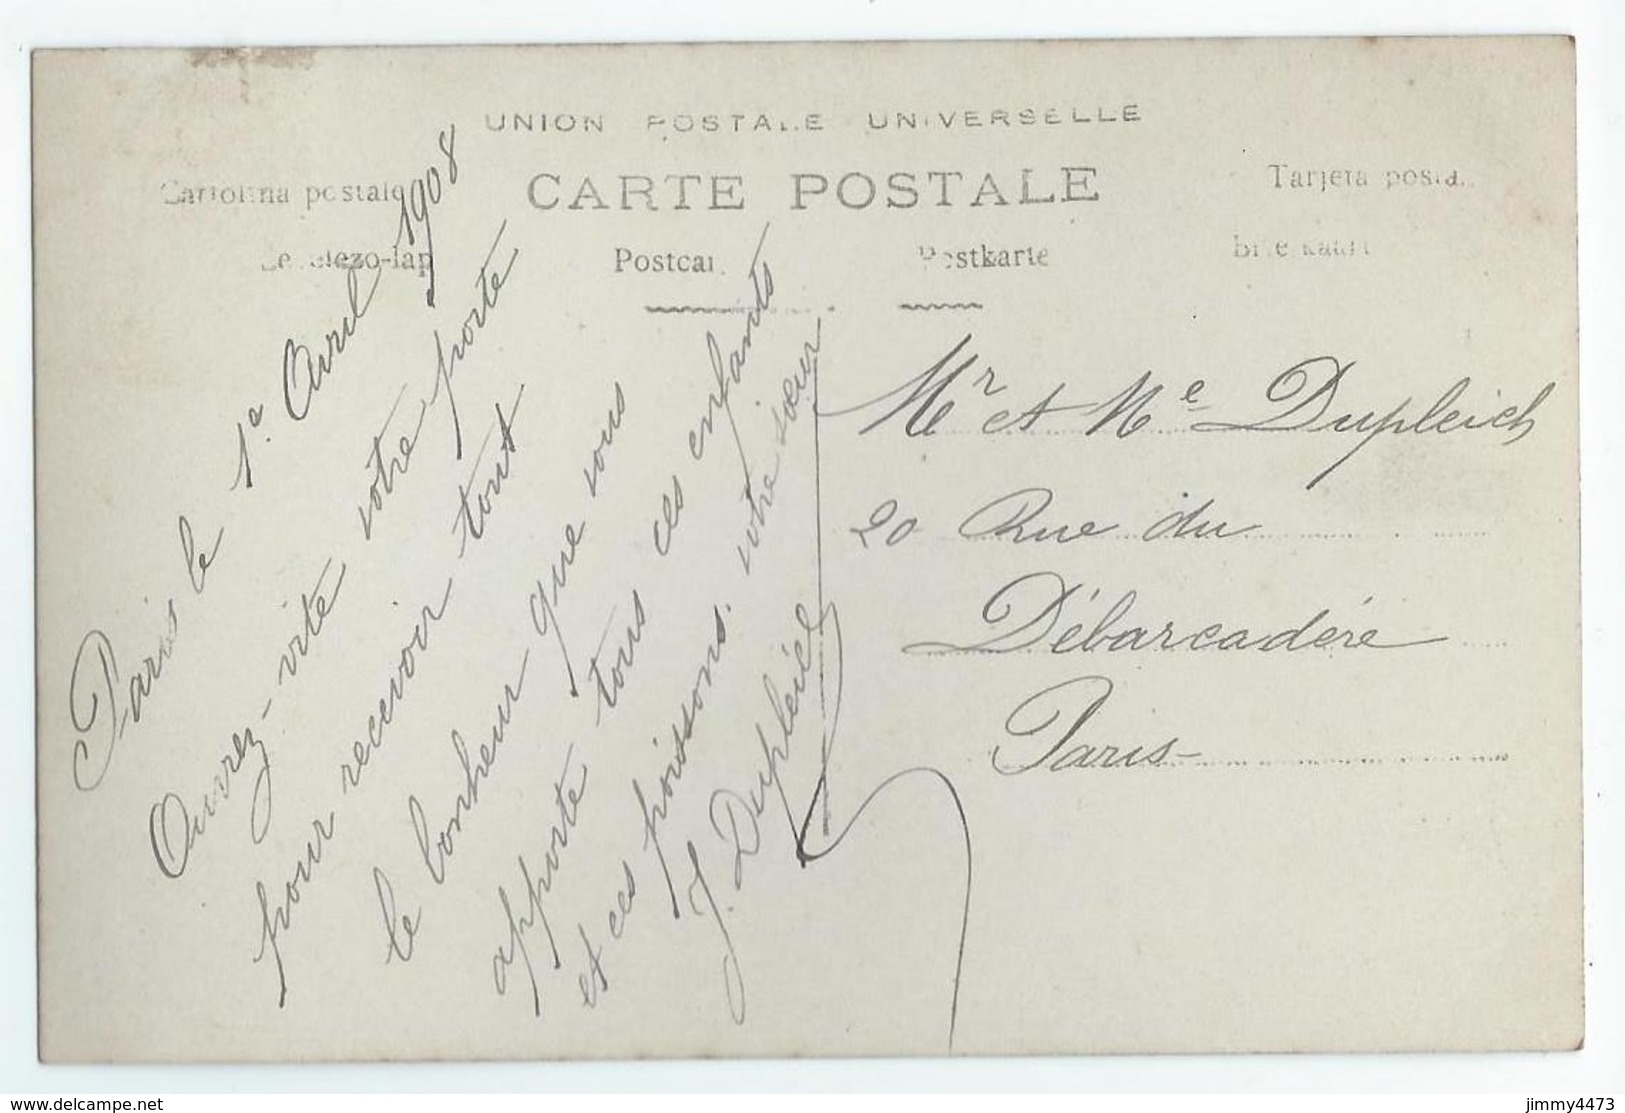 UNION POSTALE UNIVERSELLE
Cartolina postale CARTE POSTALE Tarjeta postal
Postcar Postkarte
Paris le 1e Avril 1908
Ouvrez-vite votre porte
pour recevoir tout
le bonheur que vous
apporte tous ces enfants
et ces poissons. votre sœur
J. Dupléich
Mr et Me Dupleich
20 Rue du
Débarcadére
Paris-
www.delcampe.net
jimmy4473